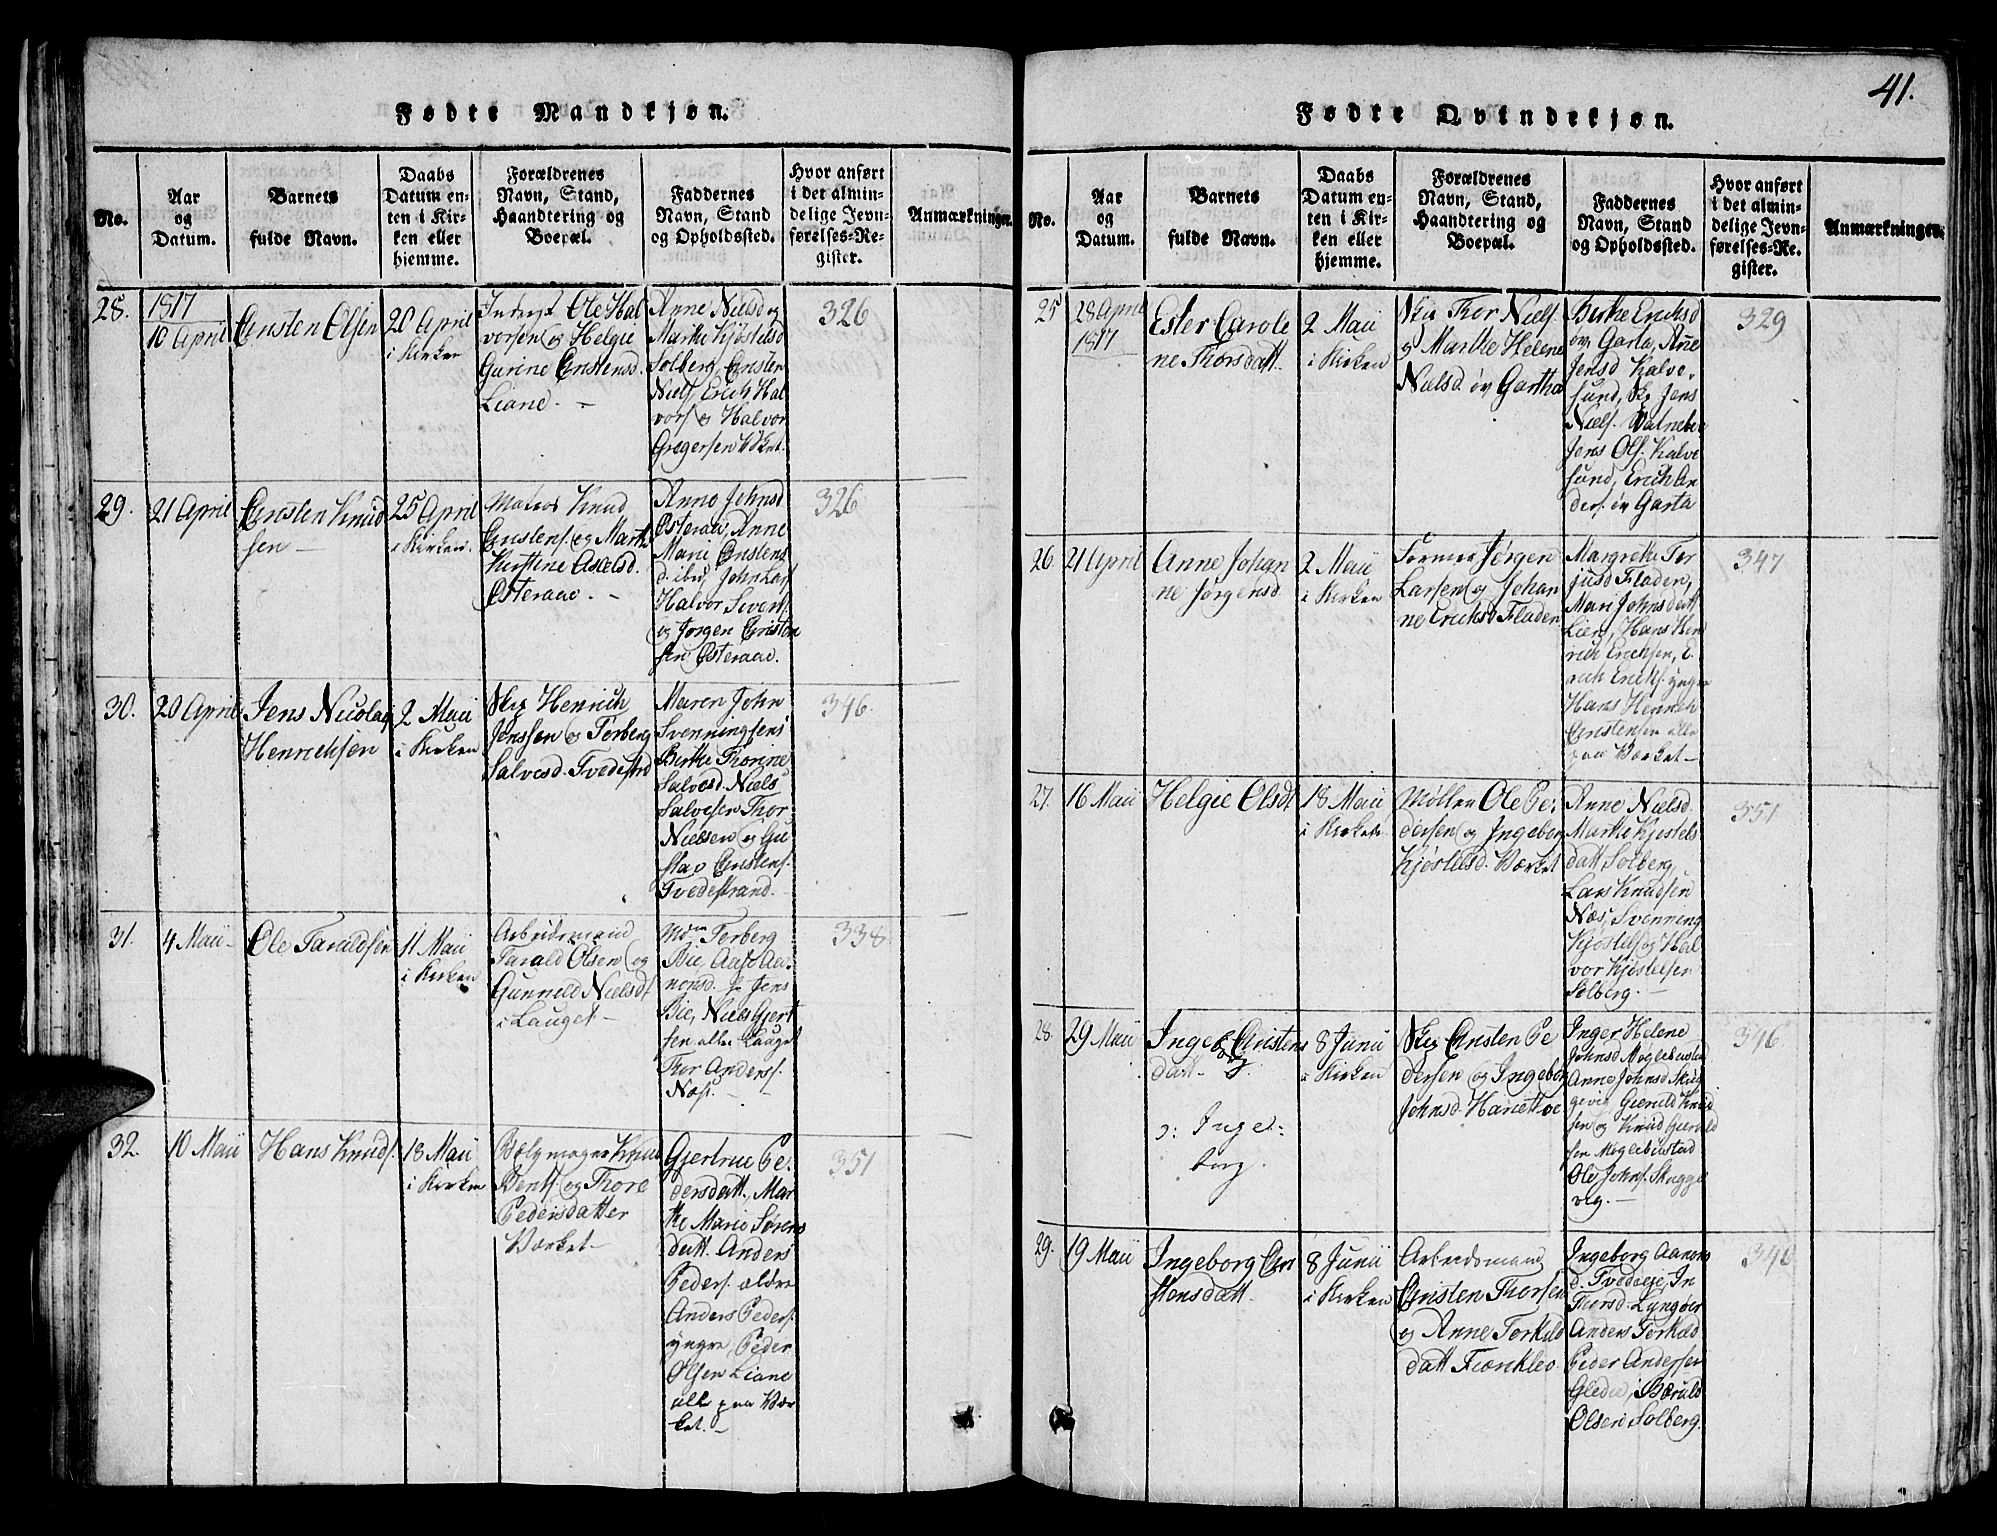 Fødte Mandkjøn.
No.
Aar
og
Datum.
Barnets
fulde Navn.
Daabs
Datum en-
ten i Kir-
ken eller
hjemme.
Forældrenes
Navn, Stand,
Haandtering og
Boepæl.
Faddernes
Navn, Stand
og Opholdssted.
Hvor anført
i det almin-
delige Jevn-
førelses-Re-
gister.
Anmærkninger.
28.
1817
10 April
Christen Olsen
20 April
i Kirken
Inderst Ole Hal
vorsen og Helgie
Gurine Christens.
Liane. -
Anne Nielsd og
Marthe Kjøstelsd
Solberg, Christen
Niels, Erich Hal
vors og Halvor
Gregersen Værket.
326
29.
21 April
Christen Knud
sen -
25 April
i Kirken.
Matros Knud
Christens. og Marthe
Kirstine Aselsd.
Østeraae. -
Anne Johnsd
Østeraae, Anne
Marie Christens
d. ibid, John Lars
Halvor Sivers.
og Jørgen Christen
sen Østeraae.
326
30.
20 April
Jens Nicolay
Henrichsen
2 Maii
i Kirken
Skip Henrich
Jenssen og Torberg
Salvesd. Tvedestrd
Maren John
Svenningsens
Birthe Thorine
Salvesd. Niels
Salvesen Thor
Nielsen og Gu
stav Christens.
Tvedestrand.
346.
31.
4 Maii -
Ole Taraldsen
11 Maii
i Kirken
Arbeidsmand
Tarald Olsen og
Gunneld Nielsd
i Lauget -
Mdm Torberg
Bie, Aase Aa-
nonsd. Jens
Bie, Niels Gjert
sen alle Lauget
Thor Anders.
Næs. -
338.
32.
10 Maii
Hans Knuds.
18 Maii
i Kirken
Bælgmager Knud
Bents. og Thore
Pedersdatter
Værket -
Gjertrue Pe-
dersdatt, Mar
the Marie Sørens
datt. Anders
Peders. ældre
Anders Peders.
yngre, Peder
Olsen Liane
alle paa Vær
ket. -
351
41.
Fødte Qvindekjøn.
No.
Aar
og
Datum.
Barnets
fulde Navn.
Daabs
Datum en-
ten i Kir-
ken eller
hjemme.
Forældrenes
Navn, Stand,
Haandtering og
Boepæl.
Faddernes
Navn, Stand
og Opholdssted.
Hvor anført
i det almin-
delige Jevn-
førelses-Re-
gister.
Anmærkninger.
25
28 April
1817
Ester Carole
ne Thorsdatt.
2 Maii
i Kirken
Skip Thor Niels.
og Marthe Helene
Nielsd. øv Gartha
Birthe Erichsd
øv Garta, Ane
Jensd Kalve-
sund, Skp Jens
Niels. Vatnebu
Jens Ols. Kalve
sund, Erich An
ders. øv Garta
329
26.
21 April
Anne Johan
ne Jørgensd
2 Maii
i Kirken
Former Jørgen
Larsen og Johan
ne Erichsd Fladen
Margrethe Ter
jusd Fladen,
Mari Johnsdatt
Lien, Hans Hen
rich Erichsen, E.
rich Erichs. yngre
Hans Henrich
Christensen alle
paa Værket -
347
27.
16 Maii
Helgie Olsdt
18 Maii
i Kirken
Møller Ole Pe-
dersen og Ingeborg
Kjøstelsd. Værket
Anne Nielsd.
Marthe Kjøstels
datt Solberg,
Lars Knudsen
Næs, Svenning
Kjøstels og Hal
vor Kjøstelsen
Solberg. -
351
28.
29 Maii
Ingeborg Christens
datt -
ɔ: Inge-
borg.
8 Junii
i Kirken
Skip Christen Pe
dersen og Ingeborg
Johnsd. Hanetthoe
Inger Helene
Johnsd Møglebustad
Anne Johnsd Skug
gevig Gieruld Knud
sen og Knud Gieruld
sen Møglebustad
Ole Johns. Skugge
vig. -
346
29.
19 Maii
Ingeborg Chri
stensdatt.
8 Junii
i Kirken
Arbeidsmand
Christen Thorsen
og Anne Torkild
datt Fiænkleo
Ingeborg Aanons
d. Tvedøeje, In
Thorsd. Lyngøer
Anders Torkild
Peder Andersen
Gledie, Bærulf
Olsen Solberg.
340